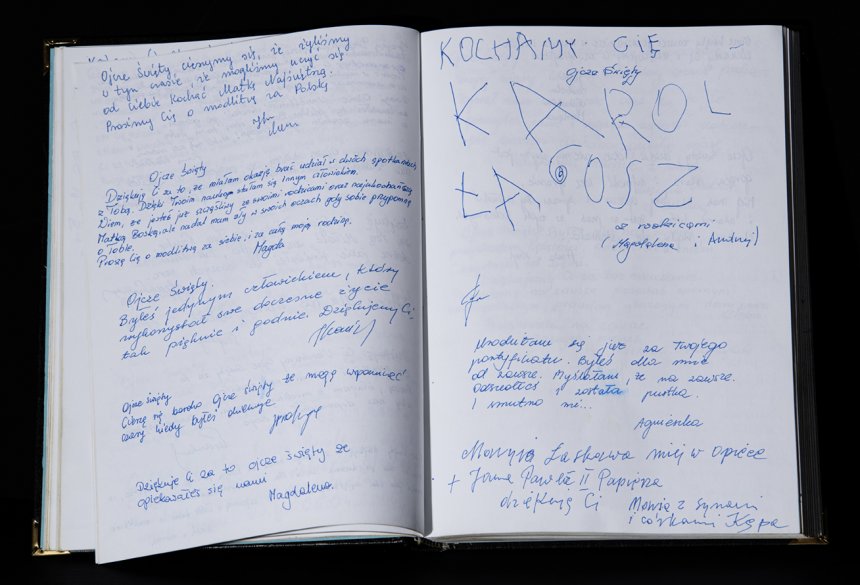 Ojcze Święty cieszymy się, że żyliśmy
w tym czasie, że mogliśmy uczyć się
od Ciebie kochać Matkę Najświętszą.
Prosimy Cię o modlitwę za Polskę
Ojcze Święty
Dziękuję Ci za to, że miałam okazję brać udział w dwóch spotkaniach
z Tobą. Dzięki Twoim naukom stałam się innym człowiekiem.
Wiem, że jesteś już szczęśliwy ze swoimi rodzicami oraz najukochańszą
Matką Boską, ale nadal mam łzy w swoich oczach gdy sobie przypomnę
o Tobie.
Proszę Cię o modlitwę za siebie i za całą moją rodzinę.
Magda
Ojcze Święty.
Byłeś jedynym człowiekiem, który
wykorzystał swe doczesne życie
tak pięknie i godnie. Dziękujemy Ci,
Ojcze święty
Cieszę się bardzo Ojcze święty że mogę wspominać
czasy kiedy byłeś
Dziękuje Ci za to ojcze święty że
opiekowałeś się nami
Magdalena.
KOCHAMY CIĘ
Ojcze Święty
KAROL
ŁAGOSZ
z rodzicami
(Magdalena i Andrzej)
Urodziłam się już za Twojego
pontyfikatu. Byłeś dla mnie
od zawsze. Myślałam, że na zawsze.
Odszedłeś i została pustka.
I smutno mi...
Agnieszka
Maryjo Łaskawa miej w opiece
+ Jana Pawła II Papieża
dziękuję Ci
Maria z synami
i córkami Kępa